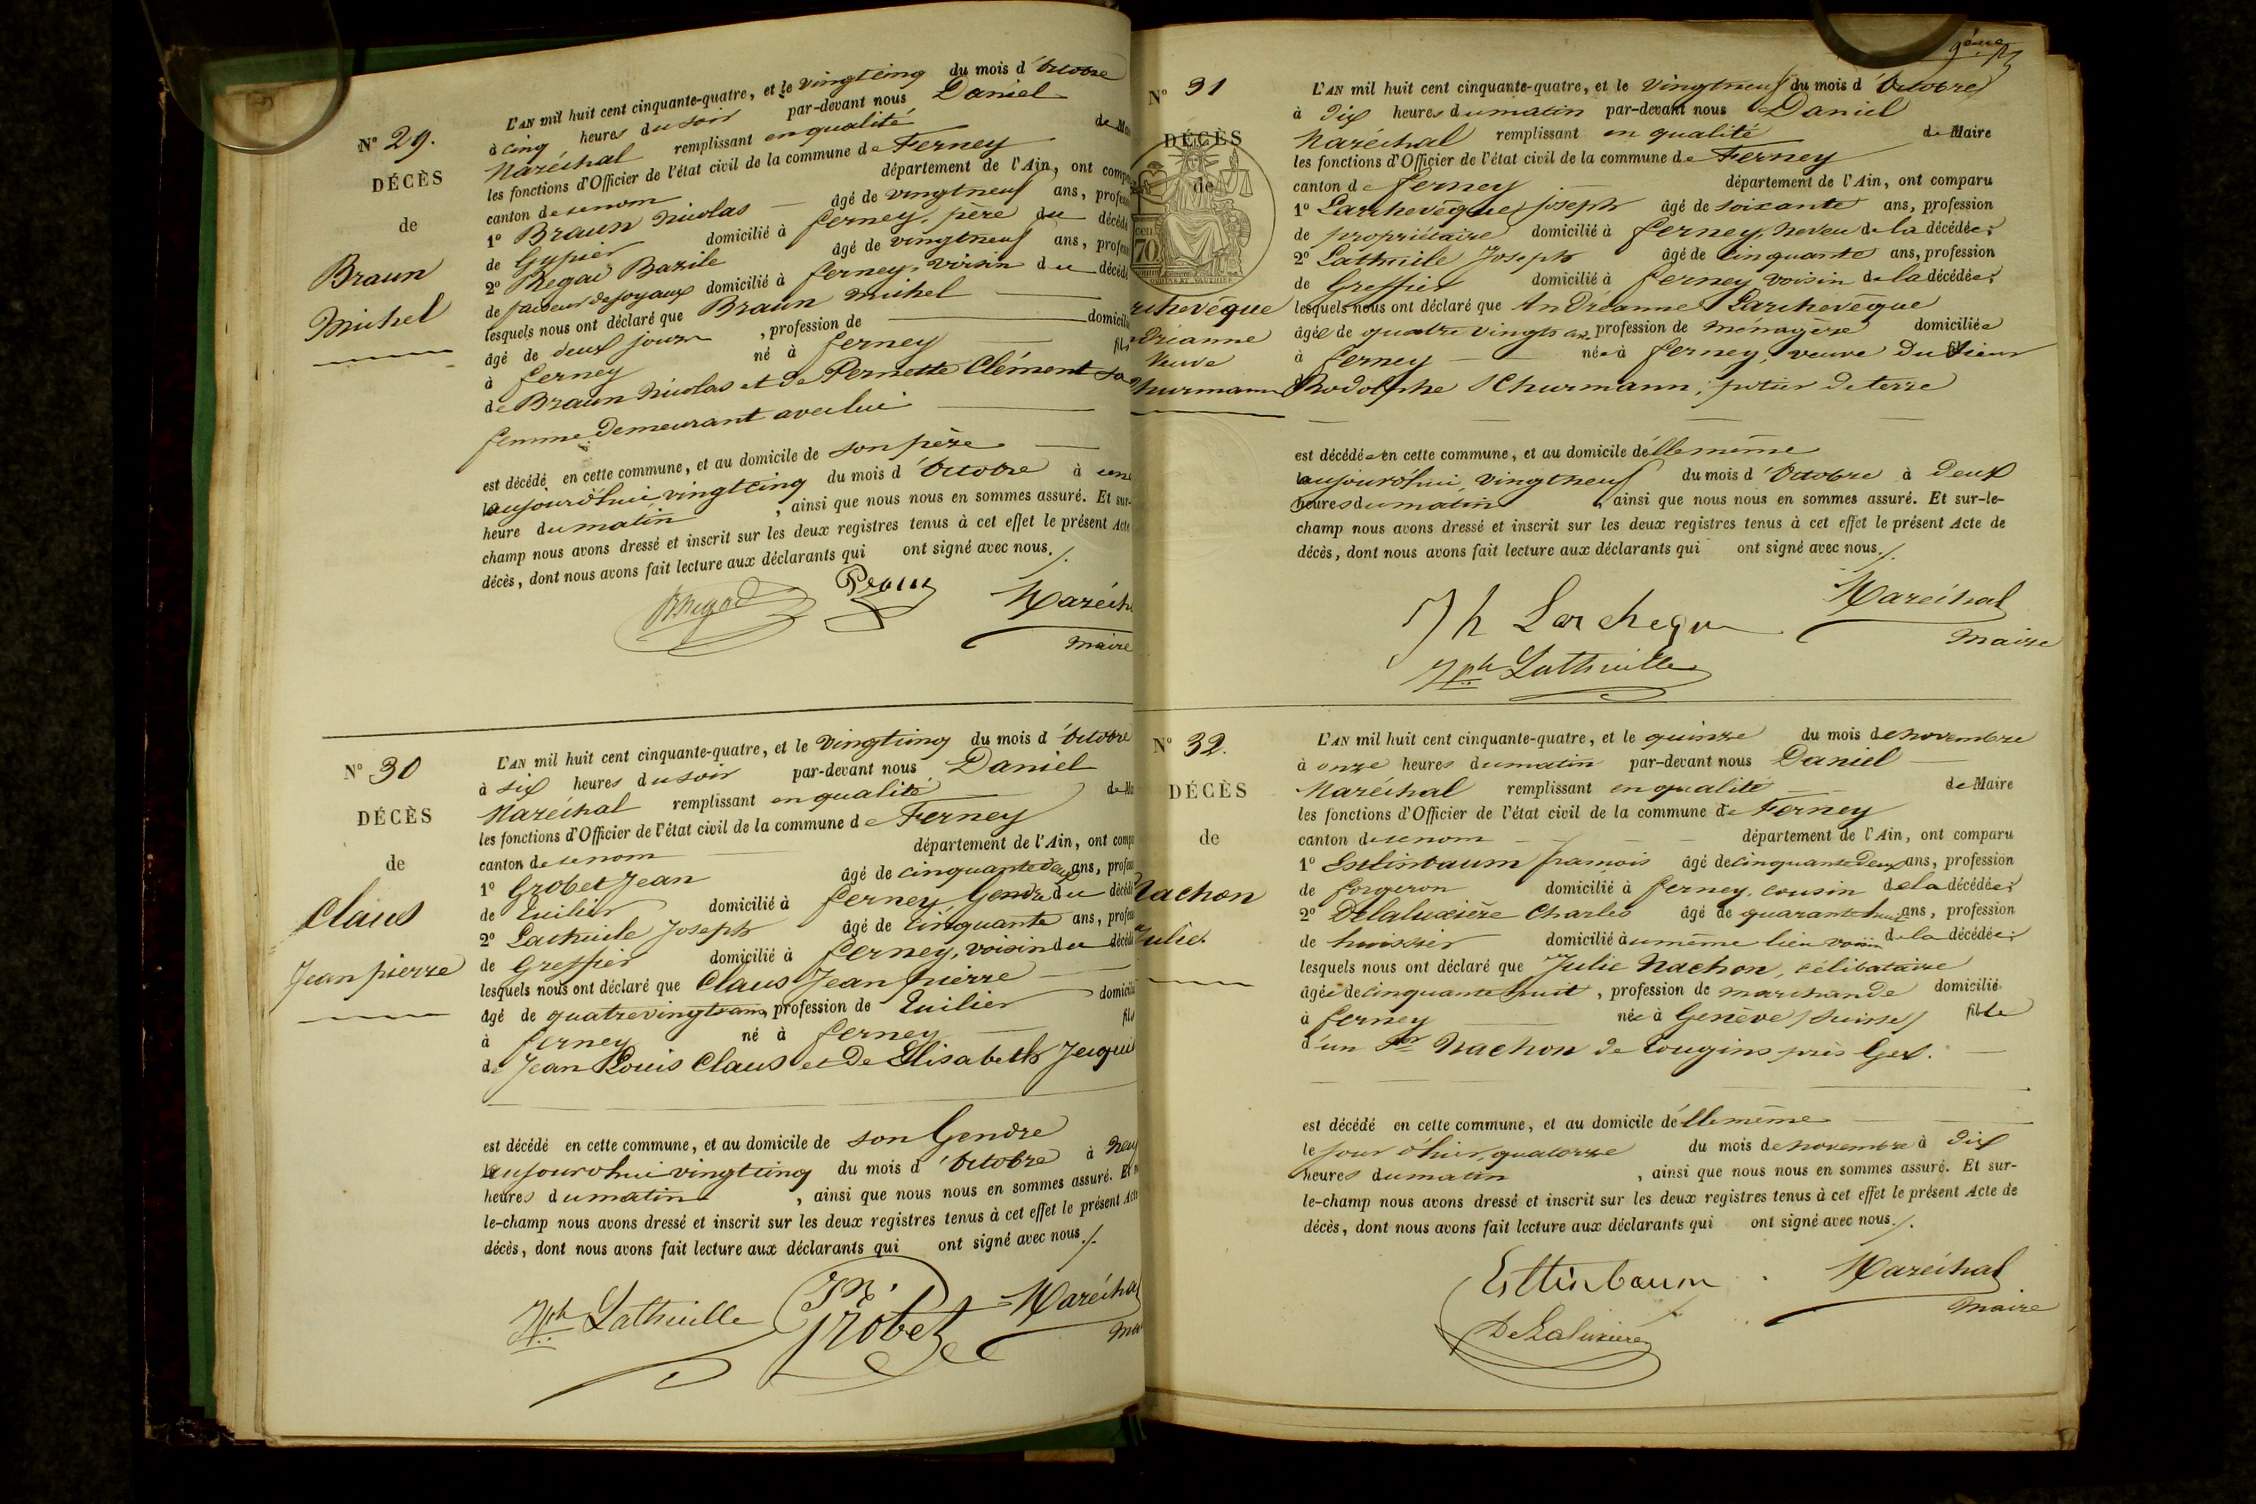 Nº 29.
DÉCÈS
de
Braun
Michel
L'AN mil huit cent cinquante-quatre, et le vingtcinq du mois d'Octobre
à cinq heures du soir par-devant nous Daniel
Maréchal remplissant en qualité de
les fonctions d'Officier de l'état civil de la commune de Ferney
canton de ce nom département de l'Ain, ont
1º Braun Nicolas âgé de vingtneuf ans,
de Gypsier domicilié à ferney, père du
2º Regad Bazile âgé de vingtneuf ans,
de faiseur de joyaux domicilié à ferney, voisin du
lesquels nous ont déclaré que Braun Michel
âgé de deux jours, profession de
à ferney né à ferney
de Braun Nicolas et de Pernette Clément sa
femme demeurant avec lui
est décédé en cette commune, et au domicile de son père
aujourd'hui vingtcinq du mois d'Octobre à une
heure du matin, ainsi que nous nous en sommes assuré. Et sur-
champ nous avons dressé et inscrit sur les deux registres tenus à cet effet le présent Acte
décès, dont nous avons fait lecture aux déclarants qui ont signé avec nous./.
BRegad Braun
Maire
Nº 30
DÉCÈS
de
Claus
Jean pierre
L'AN mil huit cent cinquante-quatre, et le vingtcinq du mois d'Octobre
à six heures du soir par-devant nous Daniel
Maréchal remplissant en qualité de
les fonctions d'Officier de l'état civil de la commune de Ferney
canton de ce nom département de l'Ain, ont
1º Grobet Jean âgé de cinquante deux ans,
de Tuilier domicilié à ferney Gendre du
2º Lathuile Joseph âgé de cinquante ans,
de Greffier domicilié à ferney, voisin du
lesquels nous ont déclaré que Claus Jean pierre
âgé de quatrevingts ans, profession de Tuilier
à ferney né à ferney fils
de Jean Louis Claus et de Elisabeth
est décédé en cette commune, et au domicile de son Gendre
aujourdhui vingtcinq du mois d'Octobre à
heures du matin, ainsi que nous nous en sommes assuré.
le-champ nous avons dressé et inscrit sur les deux registres tenus à cet effet le présent Acte
décès, dont nous avons fait lecture aux déclarants qui ont signé avec nous./.
Jph Lathuille Jn Grobet
Nº 31
DÉCÈS
de
Veuve
L'AN mil huit cent cinquante-quatre, et le vingtneuf du mois d'Octobre
à dix heures du matin par-devant nous Daniel
Maréchal remplissant en qualité de Maire
les fonctions d'Officier de l'état civil de la commune de Ferney
canton de ferney département de l'Ain, ont comparu
1º Larchevêque joseph âgé de soixante ans, profession
de propriétaire domicilié à ferney, neveu de la décédée;
2º Lathuile Joseph âgé de cinquante ans, profession
de Greffier domicilié à ferney voisin de la décédée;
lesquels nous ont déclaré que Andréanne Larchevêque
âgée de quatre vingts ans profession de ménagère domiciliée
à ferney née à ferney, veuve du sieur
Rodolphe Schurmann, potier de terre
est décédée en cette commune, et au domicile d'elle même
aujourd'hui, vingtneuf du mois d'Octobre à deux
heures du matin, ainsi que nous nous en sommes assuré. Et sur-le-
champ nous avons dressé et inscrit sur les deux registres tenus à cet effet le présent Acte de
décès, dont nous avons fait lecture aux déclarants qui ont signé avec nous./.
Maréchal
Maire
Jph Lathuille
Nº 32.
DÉCÈS
de
Nachon
Julie
L'AN mil huit cent cinquante-quatre, et le quinze du mois de novembre
à onze heures du matin par-devant nous Daniel
Maréchal remplissant en qualité de Maire
les fonctions d'Officier de l'état civil de la commune de Ferney
canton de ce nom département de l'Ain, ont comparu
1º françois âgé de cinquante deux ans, profession
de forgeron domicilié à ferney, cousin de la décédée;
2º Delaluxière Charles âgé de quarante huit ans, profession
de huissier domicilié au même lieu voisin de la décédée;
lesquels nous ont déclaré que Julie Nachon, célibataire
âgée de cinquante huit, profession de marchande domicilié
à ferney née à Genève (suisse) fille
d'un Sr Nachon de Tougins près Gex.
est décédé en cette commune, et au domicile d'elle même
le jour d'hier, quatorze du mois de novembre à dix
heures du matin, ainsi que nous nous en sommes assuré. Et sur-
le-champ nous avons dressé et inscrit sur les deux registres tenus à cet effet le présent Acte de
décès, dont nous avons fait lecture aux déclarants qui ont signé avec nous./.
Ettinbaum Maréchal
Maire
DeLaluxière